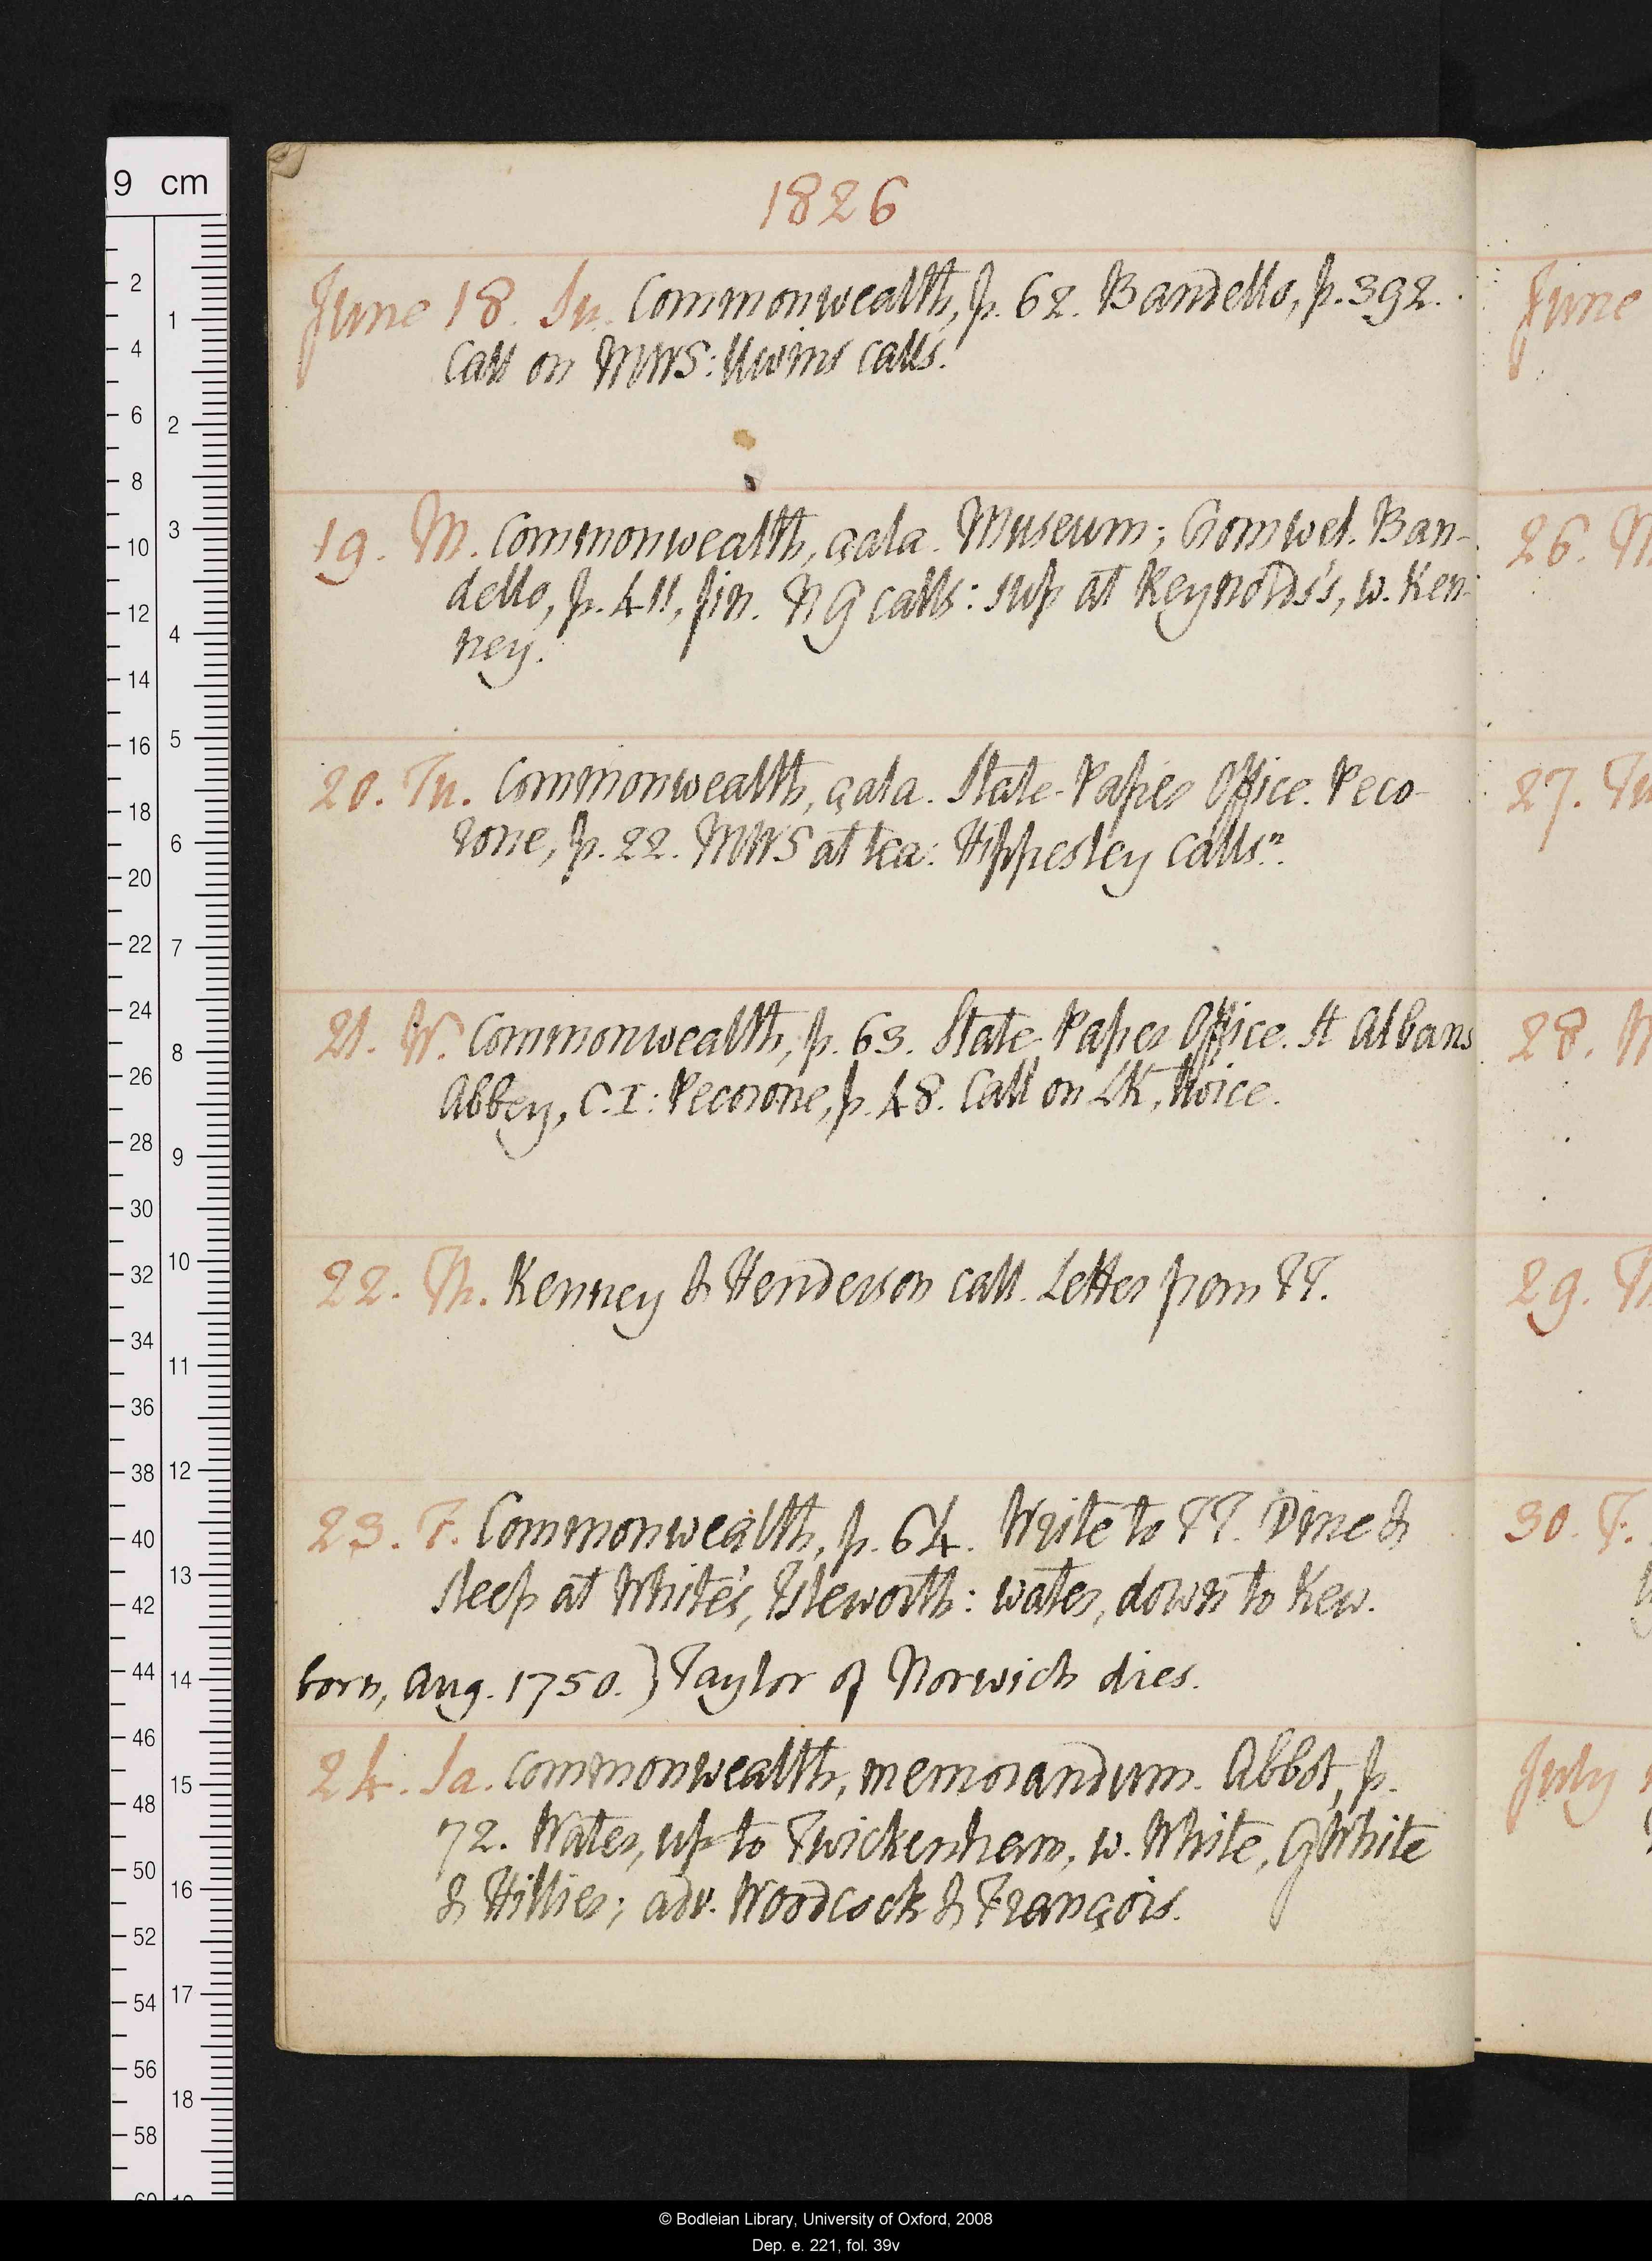 1826
June 18. Su. Commonwealth, p. 62. Bandello, p. 392.
Call on MWS: Uwins calls.
19. M. Commonwealth, çala. Museum; Cromwel. Ban-
dello, p. 411, fin. NG calls: sup at Reynolds's, w. Ken-
ney.
20. Tu. Commonwealth, çala. State-Paper Office. Peco-
rone, p. 22. MWS at tea: Hippesley calls n.
21. W. Commonwealth, p. 63. State-Paper Office. St Albans
Abbey, C. I: Pecorone, p. 48. Call on LK, Noice.
22. Th. Kenney & Henderson call. Letter from TT.
23. F. Commonwealth, p. 64. Write to TT. Dine &
sleep at White's, Isleworth: water, down to Kew.
born, Aug. 1750.} Taylor of Norwich dies.
24. Sa. Commonwealth, memorandum. Abbot, p.
72. Water, up to Twickenham, w. White, GWhite
& Hillier; adv. Woodcock & François.
June
26. M
27. Tu
28. W
29. T
30. F.
July
9 cm
2 4 6 8 10 12 14 16 18 20 22 24 26 28 30 32 34 36 38 40 42 44 46 48 50 52 54 56 58 60
1 2 3 4 5 6 7 8 9 10 11 12 13 14 15 16 17 18 19
© Bodleian Library, University of Oxford, 2008
Dep. e. 221, fol. 39v